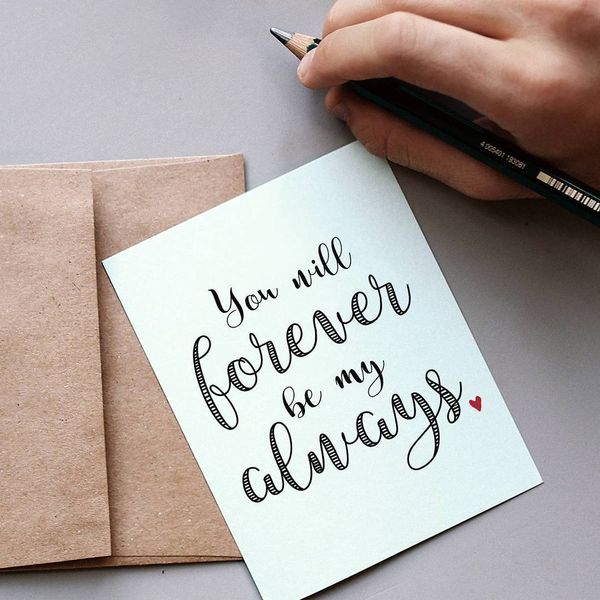 4.005401 193081
You will
forever
be my
always.